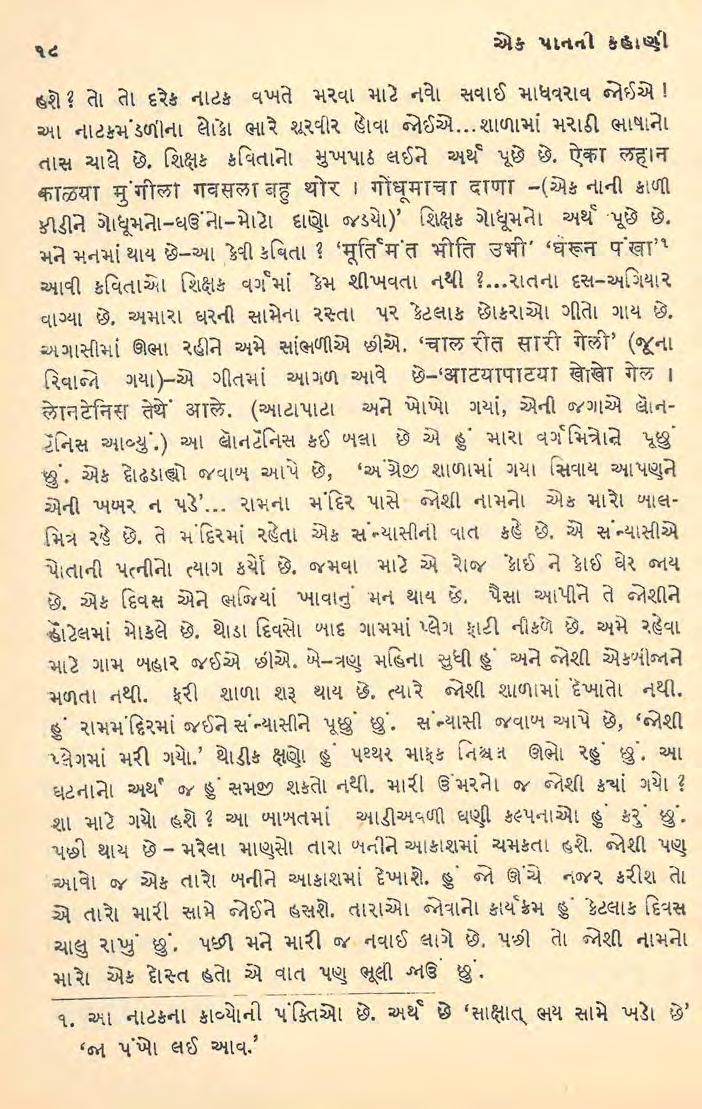 ૧૮
એક પાનની કહાણી
હશે? તો તો દરેક નાટક વખતે મરવા માટે નવો સવાઈ માધવરાવ જોઈએ !
આ નાટકમંડળીના લોકો ભારે શૂરવીર હોવા જોઈએ...શાળામાં મરાઠી ભાષાનો
તાસ ચાલે છે. શિક્ષક કવિતાનો મુખપાઠ લઈને અર્થ પૂછે છે. ऐका लहान
काळया मुंगीला गवसला बहु थोर । गोंधूमाचा दाणा –(એક નાની કાળી
કીડીને ગોધૂમનો–ઘઉંનો–મોટો દાણો જડયો)’ શિક્ષક ગોધૂમનો અર્થ પૂછે છે.
મને મનમાં થાય છે–આ કેવી કવિતા ? ‘मूर्तिमंत भीति उभी’ ‘घेरून पंखा’૧
આવી કવિતાઓ શિક્ષક વર્ગમાં કેમ શીખવતા નથી ?...રાતના દસ–અગિયાર
વાગ્યા છે. અમારા ઘરની સામેના રસ્તા પર કેટલાક છોકરાઓ ગીતો ગાય છે.
અગાસીમાં ઊભા રહીને અમે સાંભળીએ છીએ. ‘चाल रीत सारी गेली’ (જૂના
રિવાજો ગયા)–એ ગીતમાં આગળ આવે છે–‘आटयापाटया खेाखेा गेल ।
लेानटेनिस तेथें आले. (આટાપાટા અને ખોખો ગયાં, એની જગાએ લૉન-
ટૅનિસ આવ્યું.) આ લૉનટૅનિસ કઈ બલા છે એ હું મારા વર્ગમિત્રોને પૂછું
છું. એક દોઢડાહ્યો જવાબ આપે છે, ‘અંગ્રેજી શાળામાં ગયા સિવાય આપણુને
એની ખબર ન પડે’... રામના મંદિર પાસે જોશી નામનો એક મારો બાલ-
મિત્ર રહે છે. તે મંદિરમાં રહેતા એક સંન્યાસીની વાત કહે છે. એ સંન્યાસીએ
પોતાની પત્નીનો ત્યાગ કર્યો છે. જમવા માટે એ રોજ કોઈ ને કોઈ ઘેર જાય
છે. એક દિવસ એને ભજિયાં ખાવાનું મન થાય છે. પૈસા આપીને તે જોશીને
હૉટેલમાં મોકલે છે. થોડા દિવસો બાદ ગામમાં પ્લેગ ફાટી નીકળે છે. અમે રહેવા
માટે ગામ બહાર જઈએ છીએ. બે–ત્રણ મહિના સુધી હું અને જોશી એકબીજાને
મળતા નથી. ફરી શાળા શરૂ થાય છે. ત્યારે જોશી શાળામાં દેખાતો નથી.
હું રામમંદિરમાં જઈને સંન્યાસીને પૂછું છું. સંન્યાસી જવાબ આપે છે, ‘જોશી
પ્લેગમાં મરી ગયો.’ થોડીક ક્ષણો હું પથ્થર માફક નિશ્ચલ ઊભો રહું છું. આ
ઘટનાનો અર્થ જ હું સમજી શકતો નથી. મારી ઉંમરનો જ જોશી ક્યાં ગયો ?
શા માટે ગયો હશે ? આ બાબતમાં આડીઅવળી ઘણી કલ્પનાઓ હું કરું છું.
પછી થાય છે – મરેલા માણસો તારા બનીને આકાશમાં ચમકતા હશે. જોશી પણ
આવો જ એક તારો બનીને આકાશમાં દેખાશે. હું જો ઊંચે નજર કરીશ તો
એ તારો મારી સામે જોઈને હસશે. તારાઓ જોવાનો કાર્યક્રમ હું કેટલાક દિવસ
ચાલુ રાખું છું. પછી મને મારી જ નવાઈ લાગે છે. પછી તો જોશી નામનો
મારો એક દોસ્ત હતો એ વાત પણ ભૂલી જાઉં છું.
૧. આ નાટકના કાવ્યોની પંક્તિઓ છે. અર્થ છે ‘સાક્ષાત્ ભય સામે ખડો છે’
‘જા પંખો લઈ આવ.’